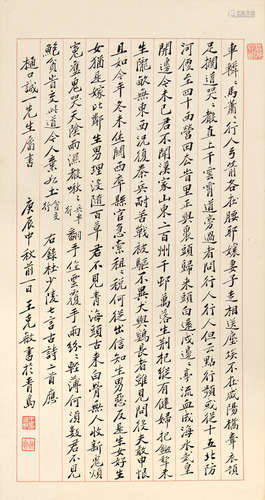 車轔々馬蕭々行人弓箭各在腰耶孃妻子走相送塵埃不見咸陽橋牽衣頓
足攔道哭々聲直上干雲霄道旁過者問行人行人但云點行頻或從十五北防
河便至四十西營田去時里正與裹頭歸來頭白還戍邊々亭流血成海水武皇
開邊意未已君不聞漢家山東二百州千邨萬落生荊杞縱有健婦把鋤犁禾
生隴畝無東西況復秦兵耐苦戰被驅不異犬與雞長者雖有問役夫敢申恨
且如今年冬未休關西卒縣官急索租々稅何從出信知生男惡反是生女好生
女猶是嫁比鄰生男埋沒隨百草君不見青海頭古來白骨無人收新鬼煩
冤舊鬼哭天陰雨濕聲啾々兵車行翻手作雲覆手雨紛々輕薄何須數君不見
鮑貧時交此道今人棄如土貧交行右錄杜少陵七言古詩二首應
樋口誠一先生屬書庚辰中秋前一日王克敏書於青島